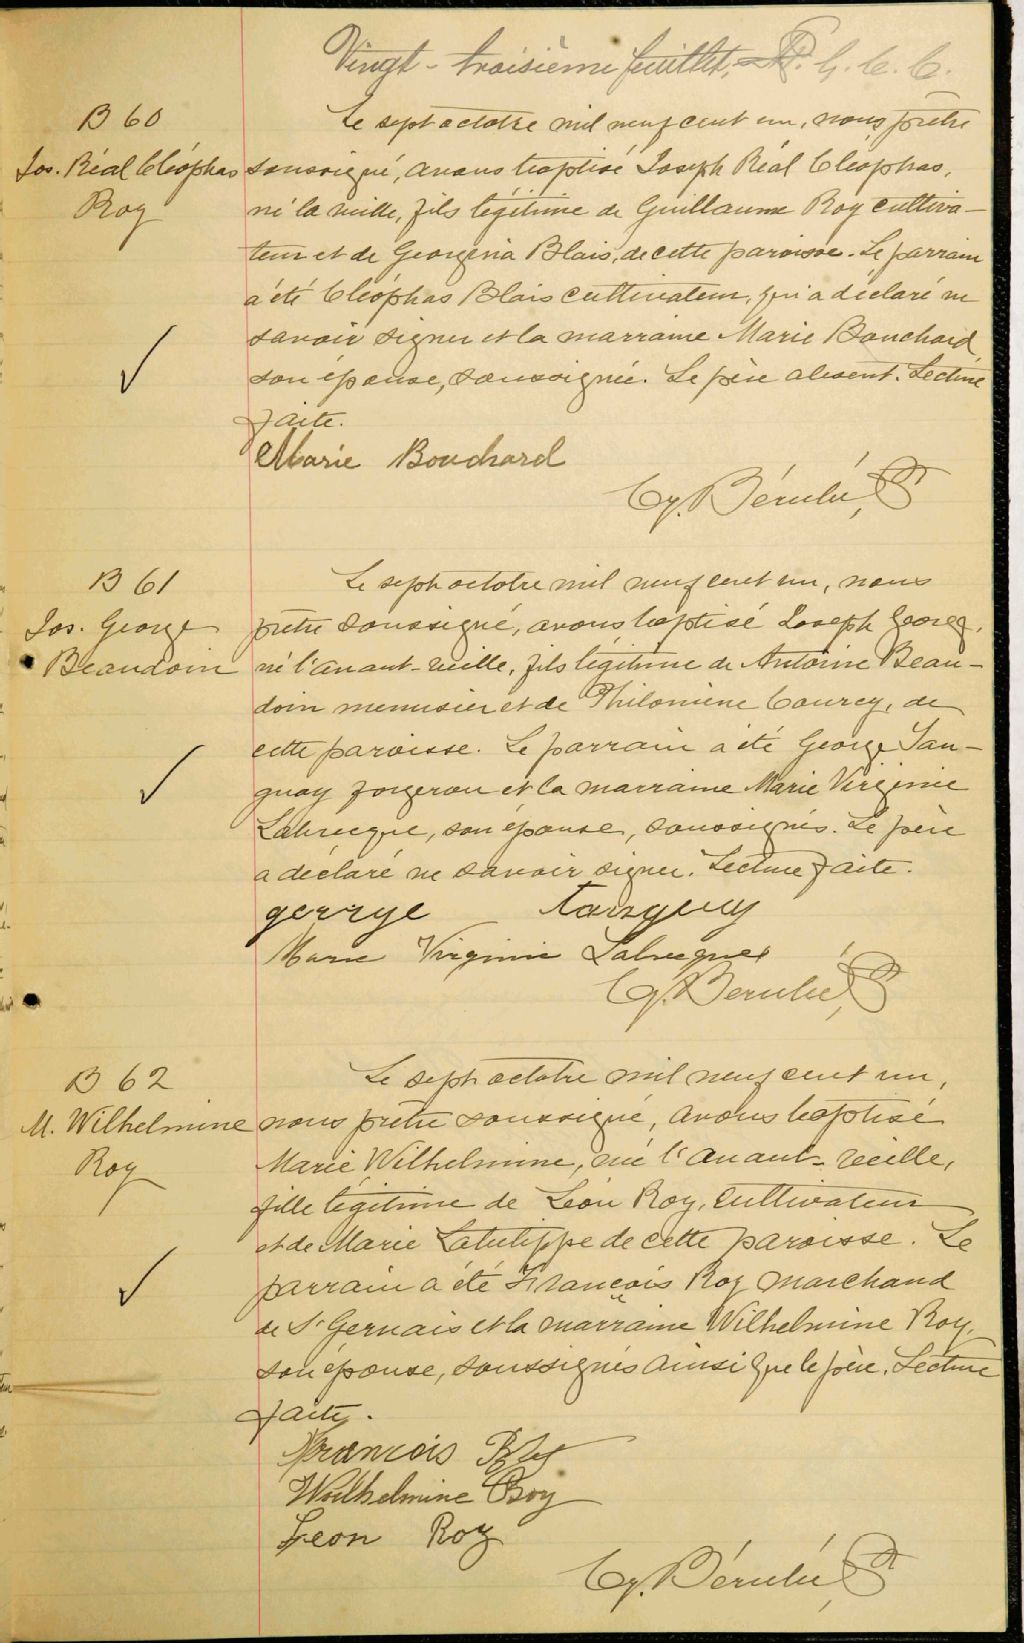 Vingt-troisième feuillet, G. C. C.
B 60
Jos. Réal Cléophas
Roy
Le sept octobre mil neuf cent un, nous prêtre
soussigné, avons baptisé Joseph Réal Cléophas,
né la veille, fils légitime de Guillaume Roy cultiva-
teur et de Georgina Blais, de cette paroisse. Le parrain
a été Cléophas Blais cultivateur, qui a déclaré ne
savoir signer et la marraine Marie Bouchard
son épouse, soussignée. Le père absent. Lecture
faite.
Marie Bouchard
Cy. Bérubé, Ptr
B 61
Jos. George
Beaudoin
Le sept octobre mil neuf cent un, nous
prêtre soussigné, avons baptisé Joseph George,
né l'avant-veille, fils légitime de Antoine Beau-
doin menuisier et de Philomène Courcy, de
cette paroisse. Le parrain a été George Tan-
guay forgeron et la marraine Marie Virginie
Labrecque, son épouse, soussignés. Le père
a déclaré ne savoir signer. Lecture faite.
gerrge Tanguy
Marie Virginie Labrecque
Cy. Bérubé, Ptr
B 62
M. Wilhelmine
Roy
Le sept octobre mil neuf cent un,
nous prêtre soussigné, avons baptisé
Marie Wilhelmine, née l'avant-veille,
fille légitime de Léon Roy, cultivateur
et de Marie Latulippe de cette paroisse. Le
parrain a été François Roy marchand
de St Gervais et la marraine Wilhelmine Roy,
son épouse, soussignés ainsi que le père. Lecture
faite.
Francois Roy
Wilhelmine Roy
Leon Roy
Cy. Bérubé, Ptr